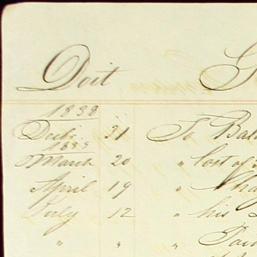 Doit G
1838
Decbr 31 To Bala
1839
March 20 " Cost of
April 19 "
July 12 " his
" "